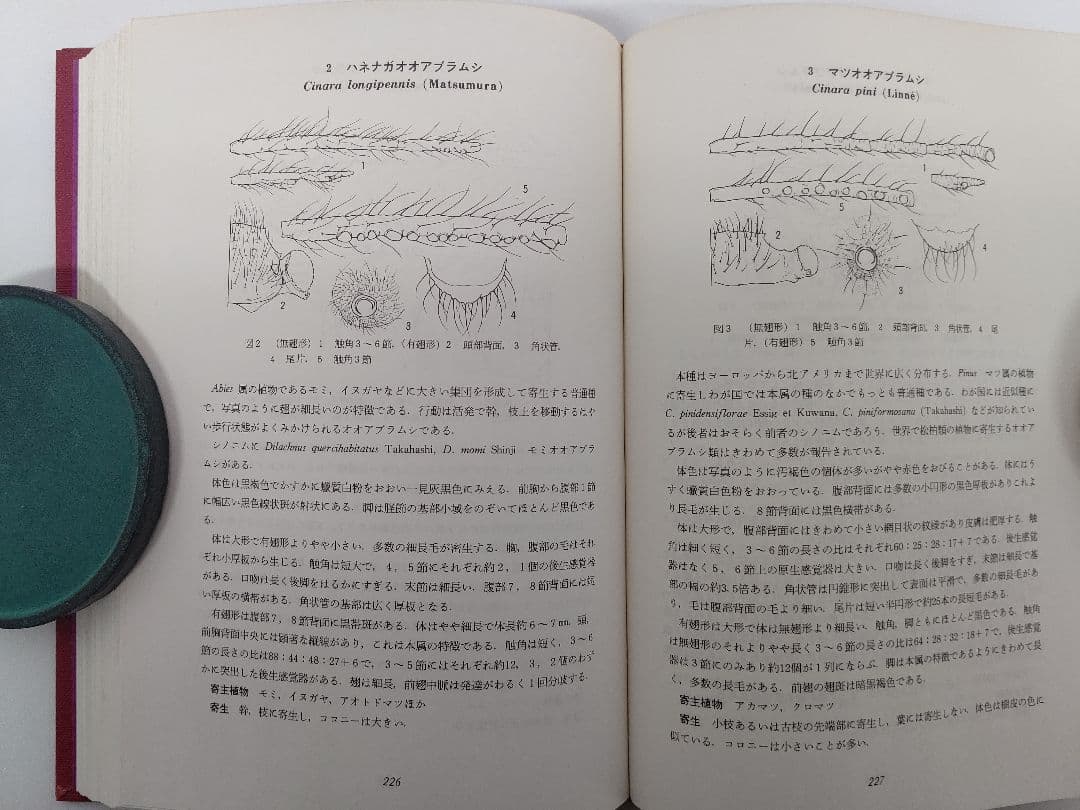 2　ハネナガオオアブラムシ
Cinara longipennis (Matsumura)
1
5
2
3
4
図2　(無翅形) 1　触角3～6節. (有翅形) 2　頭部背面, 3　角状管,
4　尾片, 5　触角3節
Abies 属の植物であるモミ, イヌガヤなどに大きい集団を形成して寄生する普通種
で, 写真のように翅が細長いのが特徴である. 行動は活発で幹, 枝上を移動するはや
い歩行状態がよくみかけられるオオアブラムシである.
シノニムに Dilachnus quercihabitatus Takahashi, D. momi Shinji モミオオアブラ
ムシがある.
体色は黒褐色でかすかに蠟質白粉をおおい一見灰黒色にみえる. 前胸から腹部1節
に幅広い黒色線状斑が射状にある. 脚は脛節の基部小域をのぞいてほとんど黒色であ
る.
体は大形で有翅形よりやや小さい. 多数の細長毛が密生する. 胸, 腹部の毛はそれ
ぞれ小厚板から生じる. 触角は短大で, 4, 5節にそれぞれ約2, 1個の後生感覚器
がある. 口吻は長く後脚をはるかにすぎる. 末節は細長い. 腹部7, 8節背面には短
い厚板の横帯がある. 角状管の基部は広く厚板となる.
有翅形は腹部7, 8節背面に黒帯斑がある. 体はやや細長で体長約6～7mm. 頭,
前胸背面中央には顕著な縦線があり, これは本属の特徴である. 触角は短く, 3～6
節の長さの比は88:44:48:27+6で, 3～5節にはそれぞれ約12, 3, 2個のわず
かに突出した後生感覚器がある. 翅は細長, 前翅中脈は発達がわるく1回分岐する.
寄主植物　モミ, イヌガヤ, アオトドマツほか
寄生　幹, 枝に寄生し, コロニーは大きい.
226
3　マツオオアブラムシ
Cinara pini (Linné)
1
5
2
3
4
図3　(無翅形) 1　触角3～6節, 2　頭部背面, 3　角状管, 4　尾
片. (有翅形) 5　触角3節
本種はヨーロッパから北アメリカまで世界に広く分布する. Pinus マツ属の植物
に寄生しわが国では本属の種のなかでもっとも普通種である. わが国には近似種に
C. pinidensiflorae Essig et Kuwana, C. piniformosana (Takahashi) などが知られてい
るが後者はおそらく前者のシノニムであろう. 世界で松柏類の植物に寄生するオオア
ブラムシ類はきわめて多数が報告されている.
体色は写真のように汚褐色の個体が多いがやや赤色をおびることがある. 体にはう
すく蠟質白色粉をおおっている. 腹部背面には多数の小円形の黒色厚板がありこれよ
り長毛が生じる. 8節背面には黒色横帯がある.
体は大形で, 腹部背面にはきわめて小さい網目状の紋様があり皮膚は肥厚する. 触
角は細く短く, 3～6節の長さの比はそれぞれ60:25:28:17+7である. 後生感覚
器はなく5, 6節上の原生感覚器は大きい. 口吻は長く後脚をすぎ, 末節は細長で基
部の幅の約3.5倍ある. 角状管は円錐形に突出して表面は平滑で, 多数の細長毛があ
り, 毛は腹部背面の毛より細い. 尾片は短い半円形で約25本の長短毛がある.
有翅形は大形で体は無翅形より細長い. 触角, 脚ともにほとんど黒色である. 触角
は無翅形のそれよりやや長く3～6節の長さの比は64:28:32:18+7で, 後生感覚
器は3節にのみあり約12個が1列にならぶ. 脚は本属の特徴であるようにきわめて長
く, 多数の長毛がある. 前翅の翅斑は暗黒褐色である.
寄主植物　アカマツ, クロマツ
寄生　小枝あるいは古枝の先端部に寄生し, 葉には寄生しない. 体色は樹皮の色に
似ている. コロニーは小さいことが多い.
227